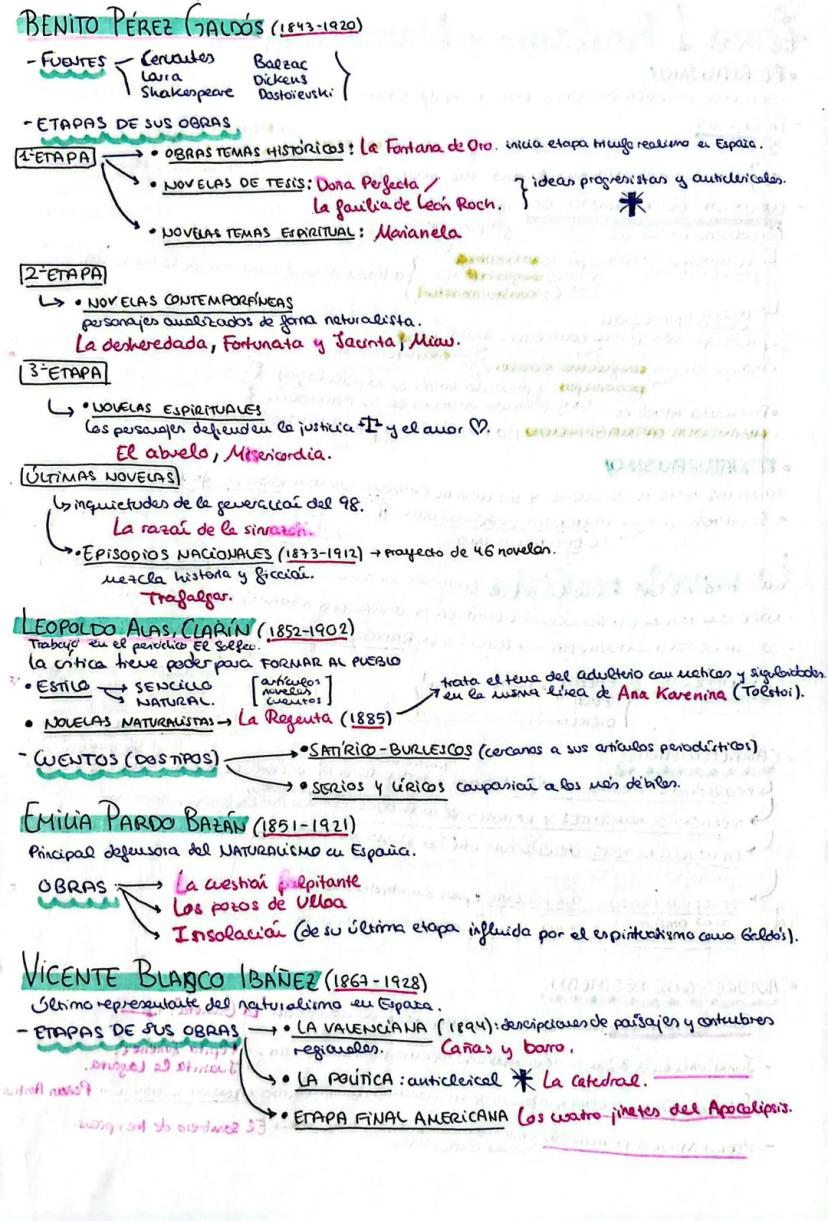 BENITO PÉREZ GALDÓS (1843-1920)
- FUENTES Cervantes Balzac
Larra Dickens
Shakespeare Dostoievski
- ETAPAS DE SUS OBRAS
1ª ETAPA • OBRAS TEMAS HISTÓRICOS: La Fontana de Oro. inicia etapa triunfo realismo en España.
• NOVELAS DE TESIS: Doña Perfecta / ideas progresistas y anticlericales.
La familia de León Roch.
• NOVELAS TEMAS ESPIRITUAL: Marianela
2ª ETAPA
• NOVELAS CONTEMPORÁNEAS
personajes analizados de forma naturalista.
La desheredada, Fortunata y Jacinta, Miau.
3ª ETAPA
• NOVELAS ESPIRITUALES
Los personajes defienden la justicia y el amor ♡.
El abuelo, Misericordia.
ÚLTIMAS NOVELAS
inquietudes de la generación del 98.
La razón de la sinrazón.
• EPISODIOS NACIONALES (1873-1912) → Proyecto de 46 novelas.
mezcla historia y ficción.
Trafalgar.
LEOPOLDO ALAS, CLARÍN (1852-1902)
Trabajó en el periódico El Solfeo.
la crítica tiene poder para FORMAR AL PUEBLO
• ESTILO → SENCILLO [artículos
NATURAL. novelas
cuentos]
trata el tema del adulterio con matices y
en la misma línea de Ana Karenina (Tolstoi).
• NOVELAS NATURALISTAS → La Regenta (1885)
- CUENTOS (DOS TIPOS) • SATÍRICO-BURLESCOS (cercanos a sus artículos periodísticos)
• SERIOS Y LÍRICOS compasión a los más débiles.
EMILIA PARDO BAZÁN (1851-1921)
Principal defensora del NATURALISMO en España.
OBRAS → La cuestión palpitante
→ Los pazos de Ulloa
→ Insolación (de su última etapa influida por el espiritualismo como Galdós).
VICENTE BLASCO IBÁÑEZ (1867-1928)
Último representante del naturalismo en España.
- ETAPAS DE SUS OBRAS → • LA VALENCIANA (1894): descripciones de paisajes y costumbres
regionales. Cañas y barro.
• LA POLÍTICA: anticlerical La catedral.
• ETAPA FINAL AMERICANA Los cuatro jinetes del Apocalipsis.